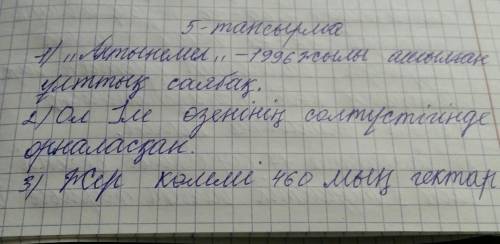 5-тапсырма
1) „Алтынемел„ - 1996 жылы ашылған
ұлттық саябақ.
2) Ол Іле өзенінің солтүстігінде
орналасқан.
3) Жер көлемі 460 мың гектар